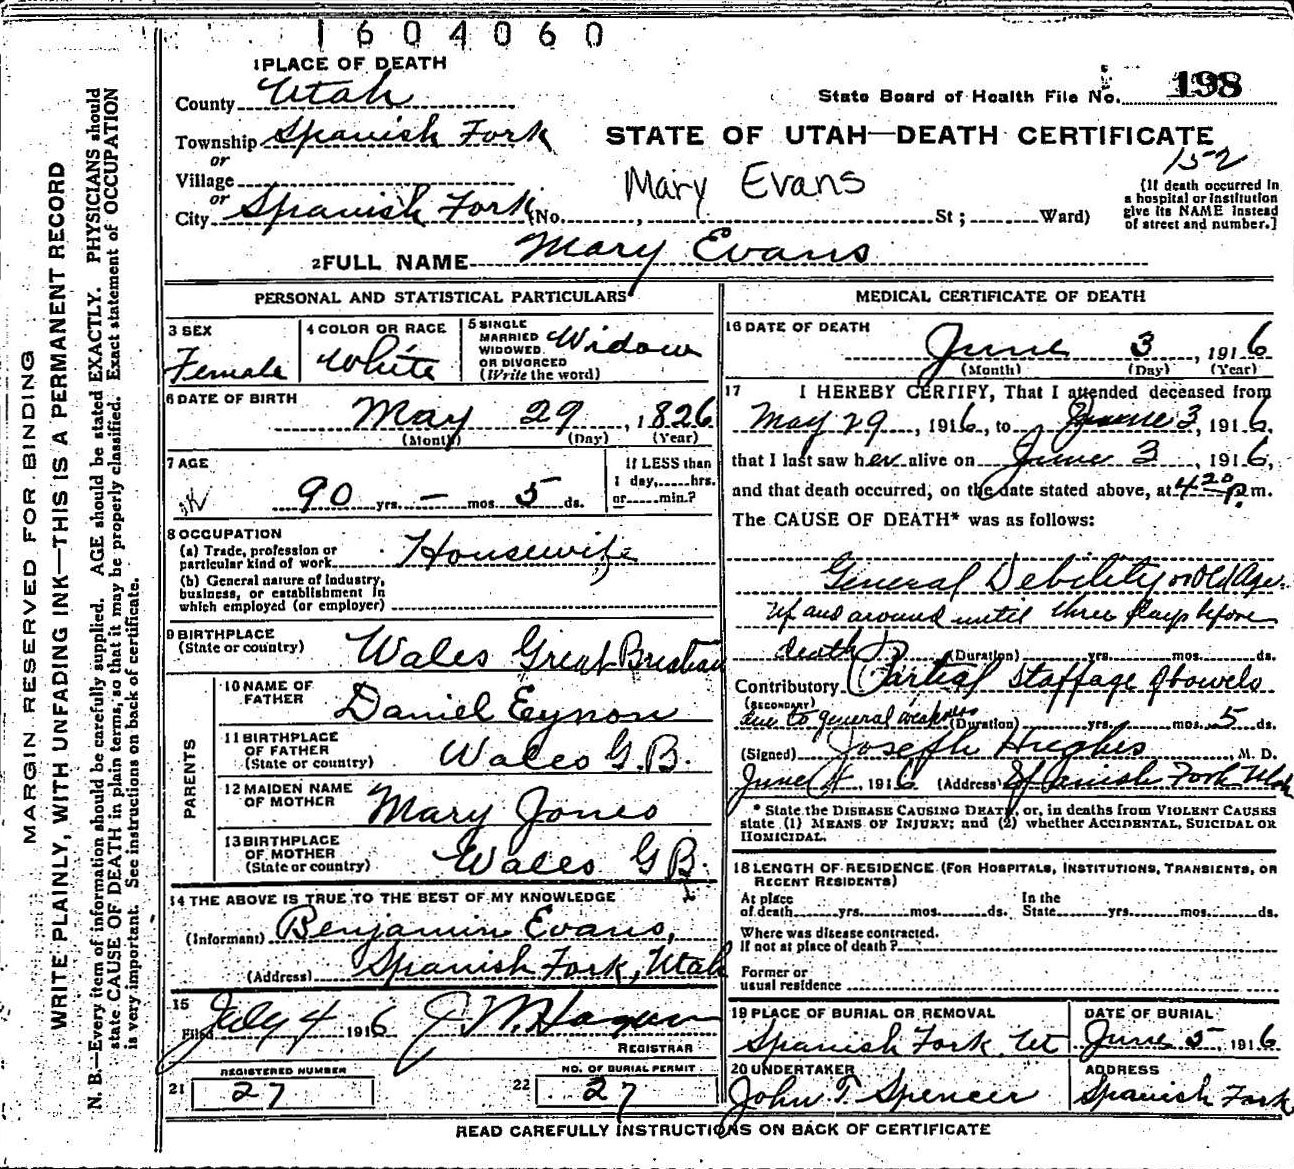 1604060
1 PLACE OF DEATH
County Utah
State Board of Health File No. 198
Township Spanish Fork
or
STATE OF UTAH—DEATH CERTIFICATE
152
Village
or
Mary Evans
City Spanish Fork (No. , St ; Ward)
[If death occurred in
a hospital or institution
give its NAME instead
of street and number.]
2 FULL NAME Mary Evans
PERSONAL AND STATISTICAL PARTICULARS
3 SEX
Female
4 COLOR OR RACE
White
5 SINGLE
MARRIED
WIDOWED.
OR DIVORCED
(Write the word)
Widow
6 DATE OF BIRTH
May 29, 1826
(Month) (Day) (Year)
7 AGE
90 yrs. — mos. 5 ds.
If LESS than
1 day,......hrs.
or......min.?
8 OCCUPATION
(a) Trade, profession or
particular kind of work
Housewife
(b) General nature of Industry,
business, or establishment in
which employed (or employer)
9 BIRTHPLACE
(State or country)
Wales Great Bristian
PARENTS
10 NAME OF
FATHER
Daniel Eynon
11 BIRTHPLACE
OF FATHER
(State or country)
Wales G.B.
12 MAIDEN NAME
OF MOTHER
Mary Jones
13 BIRTHPLACE
OF MOTHER
(State or country)
Wales G B.
14 THE ABOVE IS TRUE TO THE BEST OF MY KNOWLEDGE
(Informant) Benjamin Evans,
(Address) Spanish Fork, Utah
15
Filed July 4 1916 J. M.
REGISTRAR
REGISTERED NUMBER
21 27
NO. OF BURIAL PERMIT
22 27
MEDICAL CERTIFICATE OF DEATH
16 DATE OF DEATH
June 3, 1916
(Month) (Day) (Year)
17 I HEREBY CERTIFY, That I attended deceased from
May 29, 1916, to June 3, 1916,
that I last saw her alive on June 3, 1916,
and that death occurred, on the date stated above, at 4 20 P.m.
The CAUSE OF DEATH* was as follows:
General Debility or Old Age.
Up and around until three days before
death (Duration) yrs. mos. ds.
Contributory Partial Staffage of bowels
(SECONDARY)
due to general weakness (Duration) yrs. mos. 5 ds.
(Signed) Joseph Hughes, M. D.
June 4, 1916 (Address) Spanish Fork Utah
* State the DISEASE CAUSING DEATH, or, in deaths from VIOLENT CAUSES
state (1) MEANS OF INJURY; and (2) whether ACCIDENTAL, SUICIDAL OR
HOMICIDAL.
18 LENGTH OF RESIDENCE (FOR HOSPITALS, INSTITUTIONS, TRANSIENTS, OR
RECENT RESIDENTS)
At place
of death yrs. mos. ds.
In the
State yrs. mos. ds.
Where was disease contracted.
If not at place of death ?
Former or
usual residence
19 PLACE OF BURIAL OR REMOVAL
Spanish Fork. Ut
DATE OF BURIAL
June 5, 1916
20 UNDERTAKER
John T. Spencer
ADDRESS
Spanish Fork
READ CAREFULLY INSTRUCTIONS ON BACK OF CERTIFICATE
MARGIN RESERVED FOR BINDING
WRITE PLAINLY, WITH UNFADING INK—THIS IS A PERMANENT RECORD
N. B.—Every item of information should be carefully supplied. AGE should be stated EXACTLY. PHYSICIANS should
state CAUSE OF DEATH in plain terms, so that it may be properly classified. Exact statement of OCCUPATION
is very important. See instructions on back of certificate.